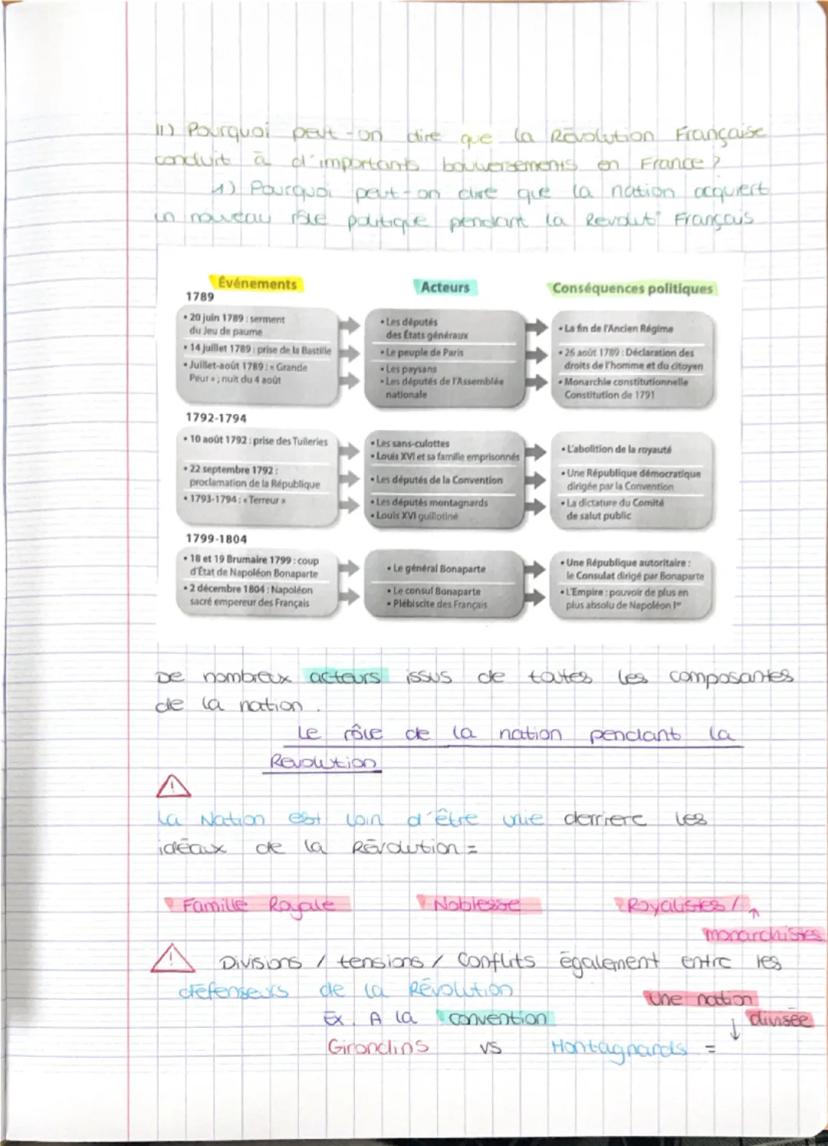 II) Pourquoi peut-on dire que la Révolution Française
conduit à d'importants bouversements en France ?
1) Pourquoi peut-on dire que la nation acquiert
un nouveau rôle politique pendant la Révoluti° Français
Événements
Acteurs
Conséquences politiques
1789
• 20 juin 1789 : serment
du Jeu de paume
• 14 juillet 1789 : prise de la Bastille
• Juillet-août 1789 : « Grande
Peur » ; nuit du 4 août
• Les députés
des États généraux
• Le peuple de Paris
• Les paysans
• Les députés de l'Assemblée
nationale
• La fin de l'Ancien Régime
• 26 août 1789 : Déclaration des
droits de l'homme et du citoyen
• Monarchie constitutionnelle
Constitution de 1791
1792-1794
• 10 août 1792 : prise des Tuileries
• 22 septembre 1792 :
proclamation de la République
• 1793-1794 : « Terreur »
• Les sans-culottes
• Louis XVI et sa famille emprisonnés
• Les députés de la Convention
• Les députés montagnards
• Louis XVI guillotiné
• L'abolition de la royauté
• Une République démocratique
dirigée par la Convention
• La dictature du Comité
de salut public
1799-1804
• 18 et 19 Brumaire 1799 : coup
d'État de Napoléon Bonaparte
• 2 décembre 1804 : Napoléon
sacré empereur des Français
• Le général Bonaparte
• Le consul Bonaparte
• Plébiscite des Français
• Une République autoritaire :
le Consulat dirigé par Bonaparte
• L'Empire : pouvoir de plus en
plus absolu de Napoléon Ier
De nombreux acteurs issus de toutes les composantes
de la nation.
Le rôle de la nation pendant la
Révolution
!
La Nation est loin d'être unie derriere les
idéaux de la Révolution =
Famille Royale Noblesse Royalistes / ↑
monarchistes
! Divisions / tensions / conflits également entre les
défenseurs de la Révolution
Une nation
Ex. A la convention ↓ divisée
Girondins vs Montagnards =